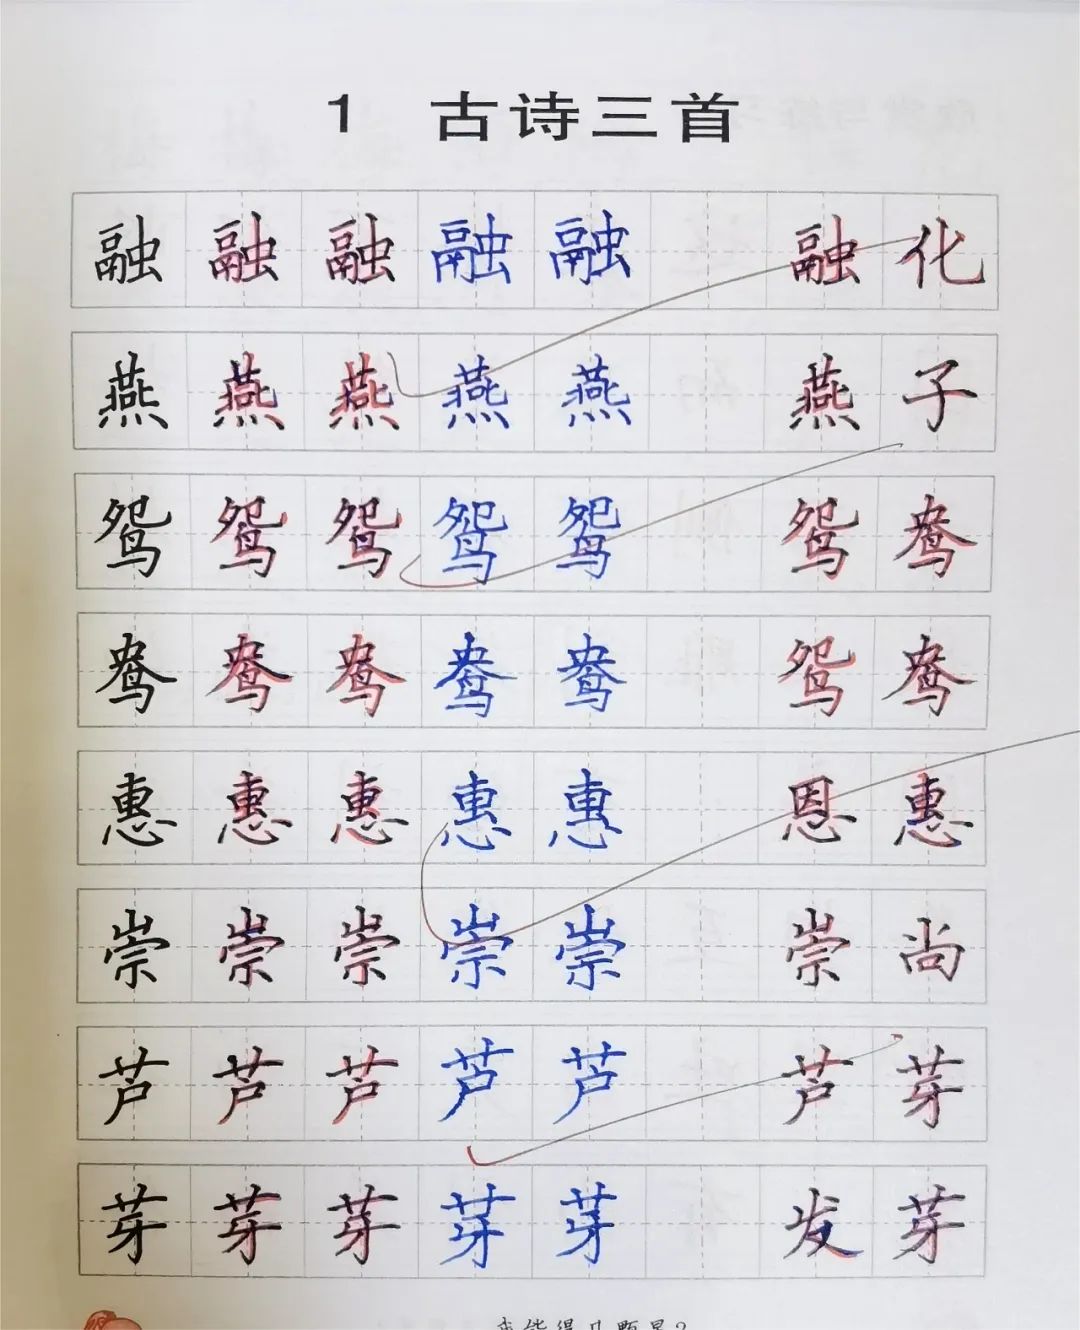 1 古诗三首
融 融 融 融 融 融 化
燕 燕 燕 燕 燕 燕 子
鸳 鸳 鸳 鸳 鸳 鸳 鸯
鸯 鸯 鸯 鸯 鸯 鸳 鸯
惠 惠 惠 惠 惠 恩 惠
崇 崇 崇 崇 崇 崇 尚
芦 芦 芦 芦 芦 芦 芽
芽 芽 芽 芽 芽 发 芽